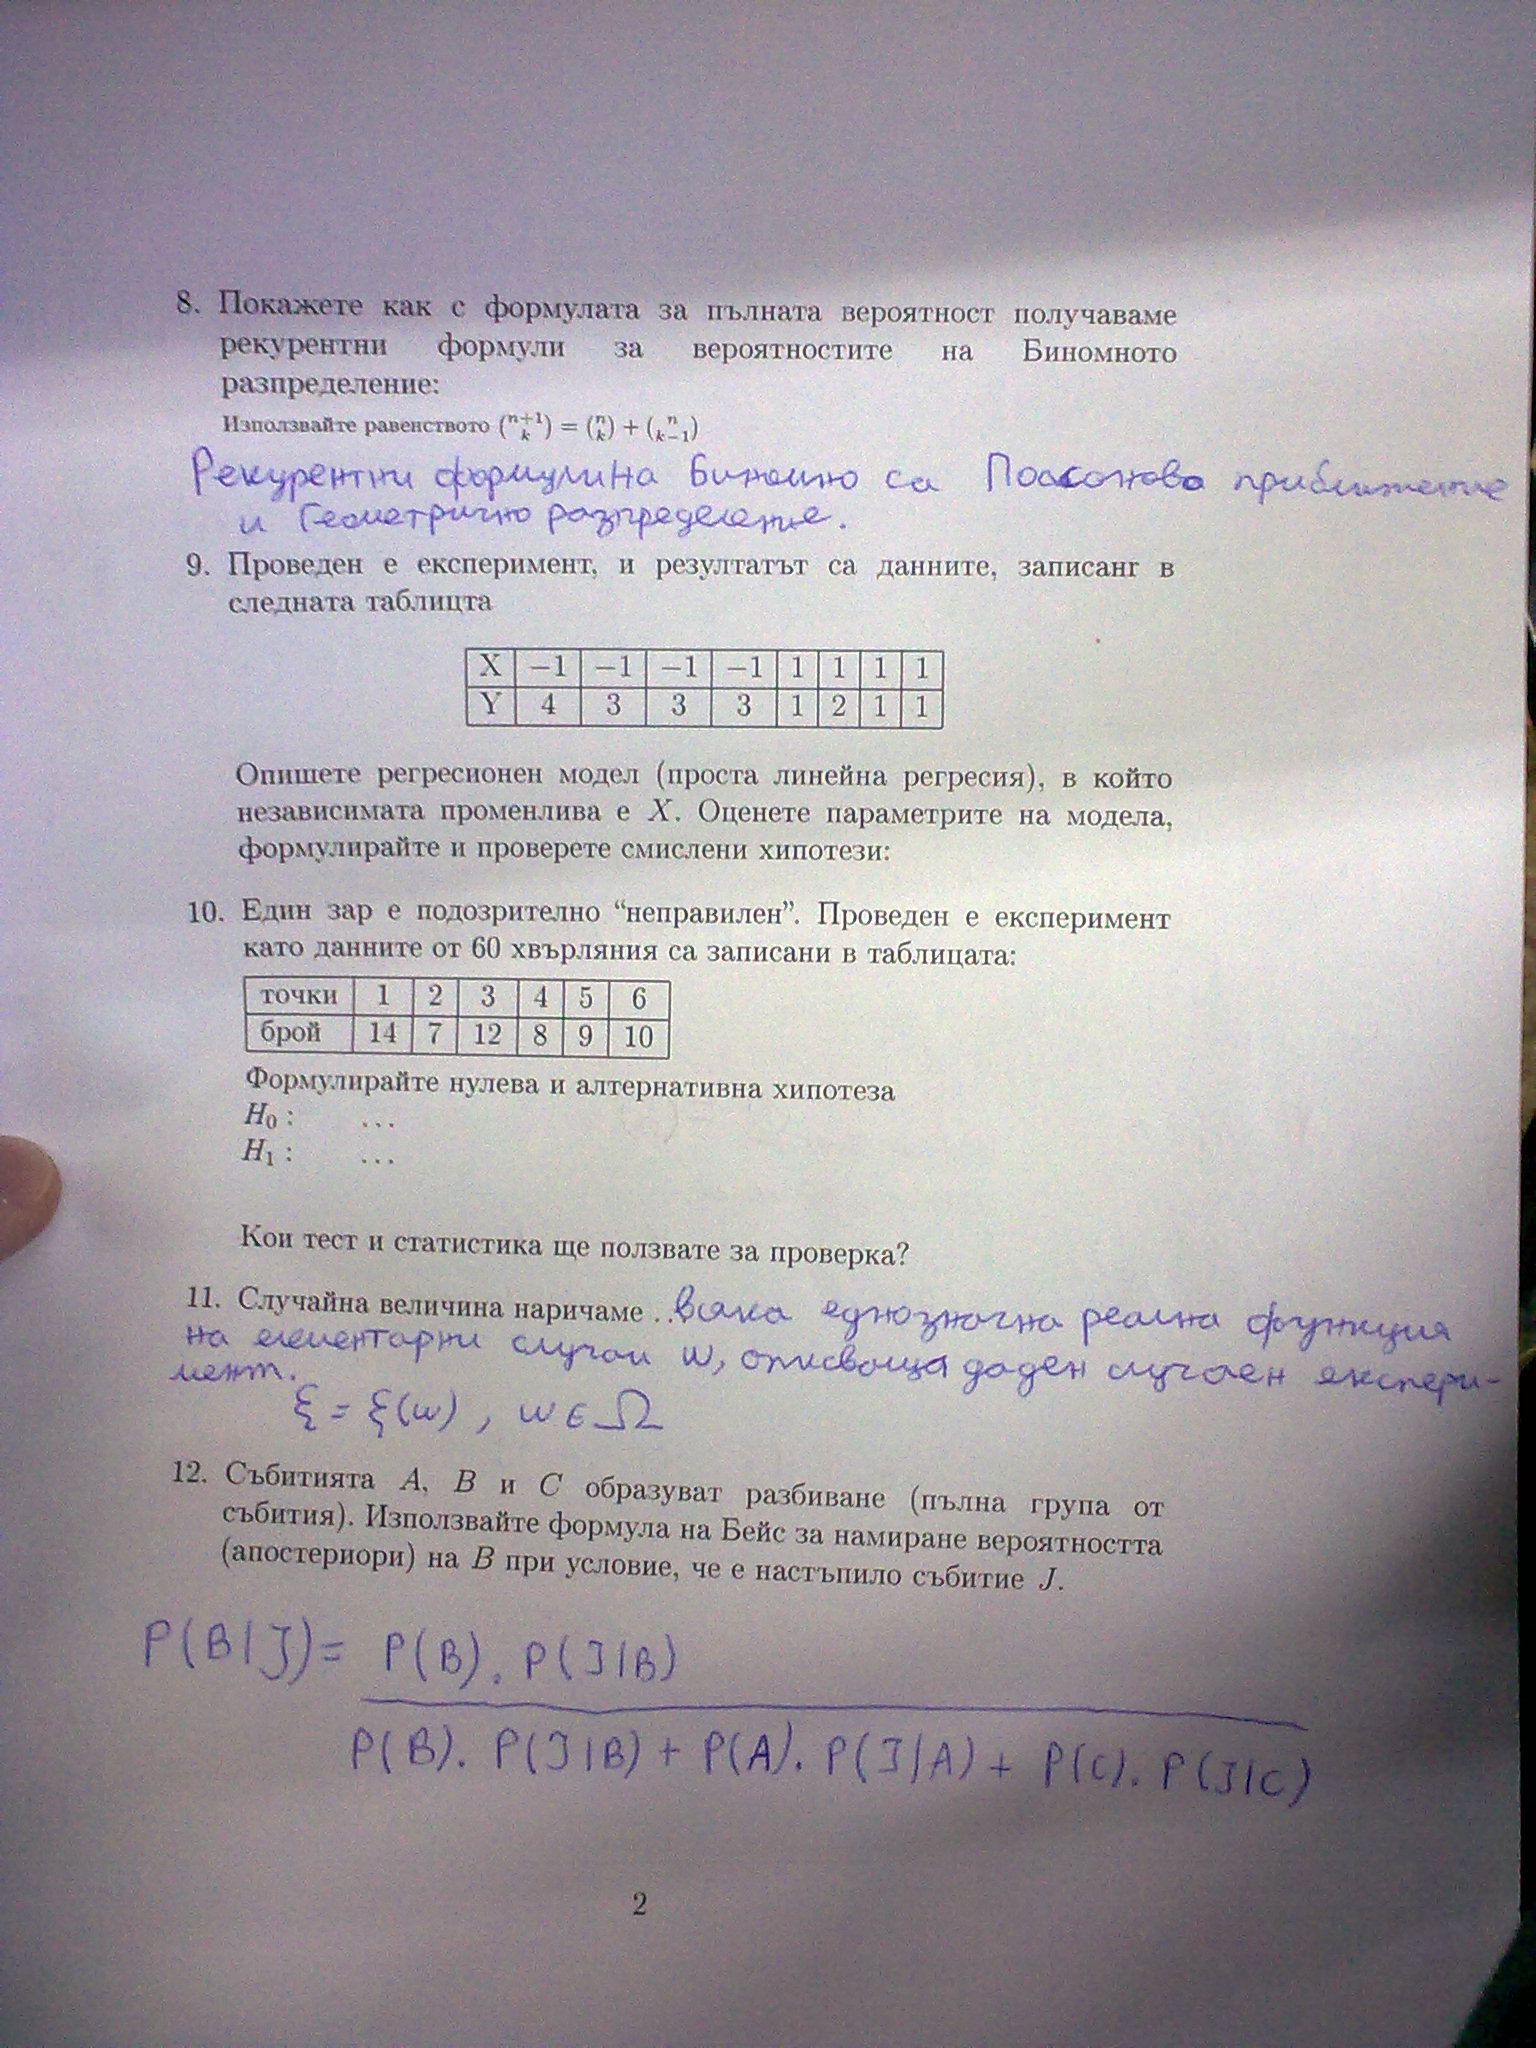 8. Покажете как с формулата за пълната вероятност получаваме
рекурентни формули за вероятностите на Биномното
разпределение:
Използвайте равенството (n+1 k) = (n k) + (n k−1)
Рекурентни формули на Биномно са Поасоново приближение
и Геометрично разпределение.
9. Проведен е експеримент, и резултатът са данните, записанг в
следната таблицта
X −1 −1 −1 −1 1 1 1 1
Y 4 3 3 3 1 2 1 1
Опишете регресионен модел (проста линейна регресия), в който
независимата променлива е X. Оценете параметрите на модела,
формулирайте и проверете смислени хипотези:
10. Един зар е подозрително “неправилен”. Проведен е експеримент
като данните от 60 хвърляния са записани в таблицата:
точки 1 2 3 4 5 6
брой 14 7 12 8 9 10
Формулирайте нулева и алтернативна хипотеза
H₀ : ...
H₁ : ...
Кои тест и статистика ще ползвате за проверка?
11. Случайна величина наричаме .. всяка еднозначна реална функция
на елементарни случаи w, описваща даден случаен експери-
мент.
ξ = ξ(w) , w ∈ Ω
12. Събитията A, B и C образуват разбиване (пълна група от
събития). Използвайте формула на Бейс за намиране вероятността
(апостериори) на B при условие, че е настъпило събитие J.
P(B|J) = P(B). P(J|B)
P(B). P(J|B) + P(A). P(J|A) + P(C). P(J|C)
2